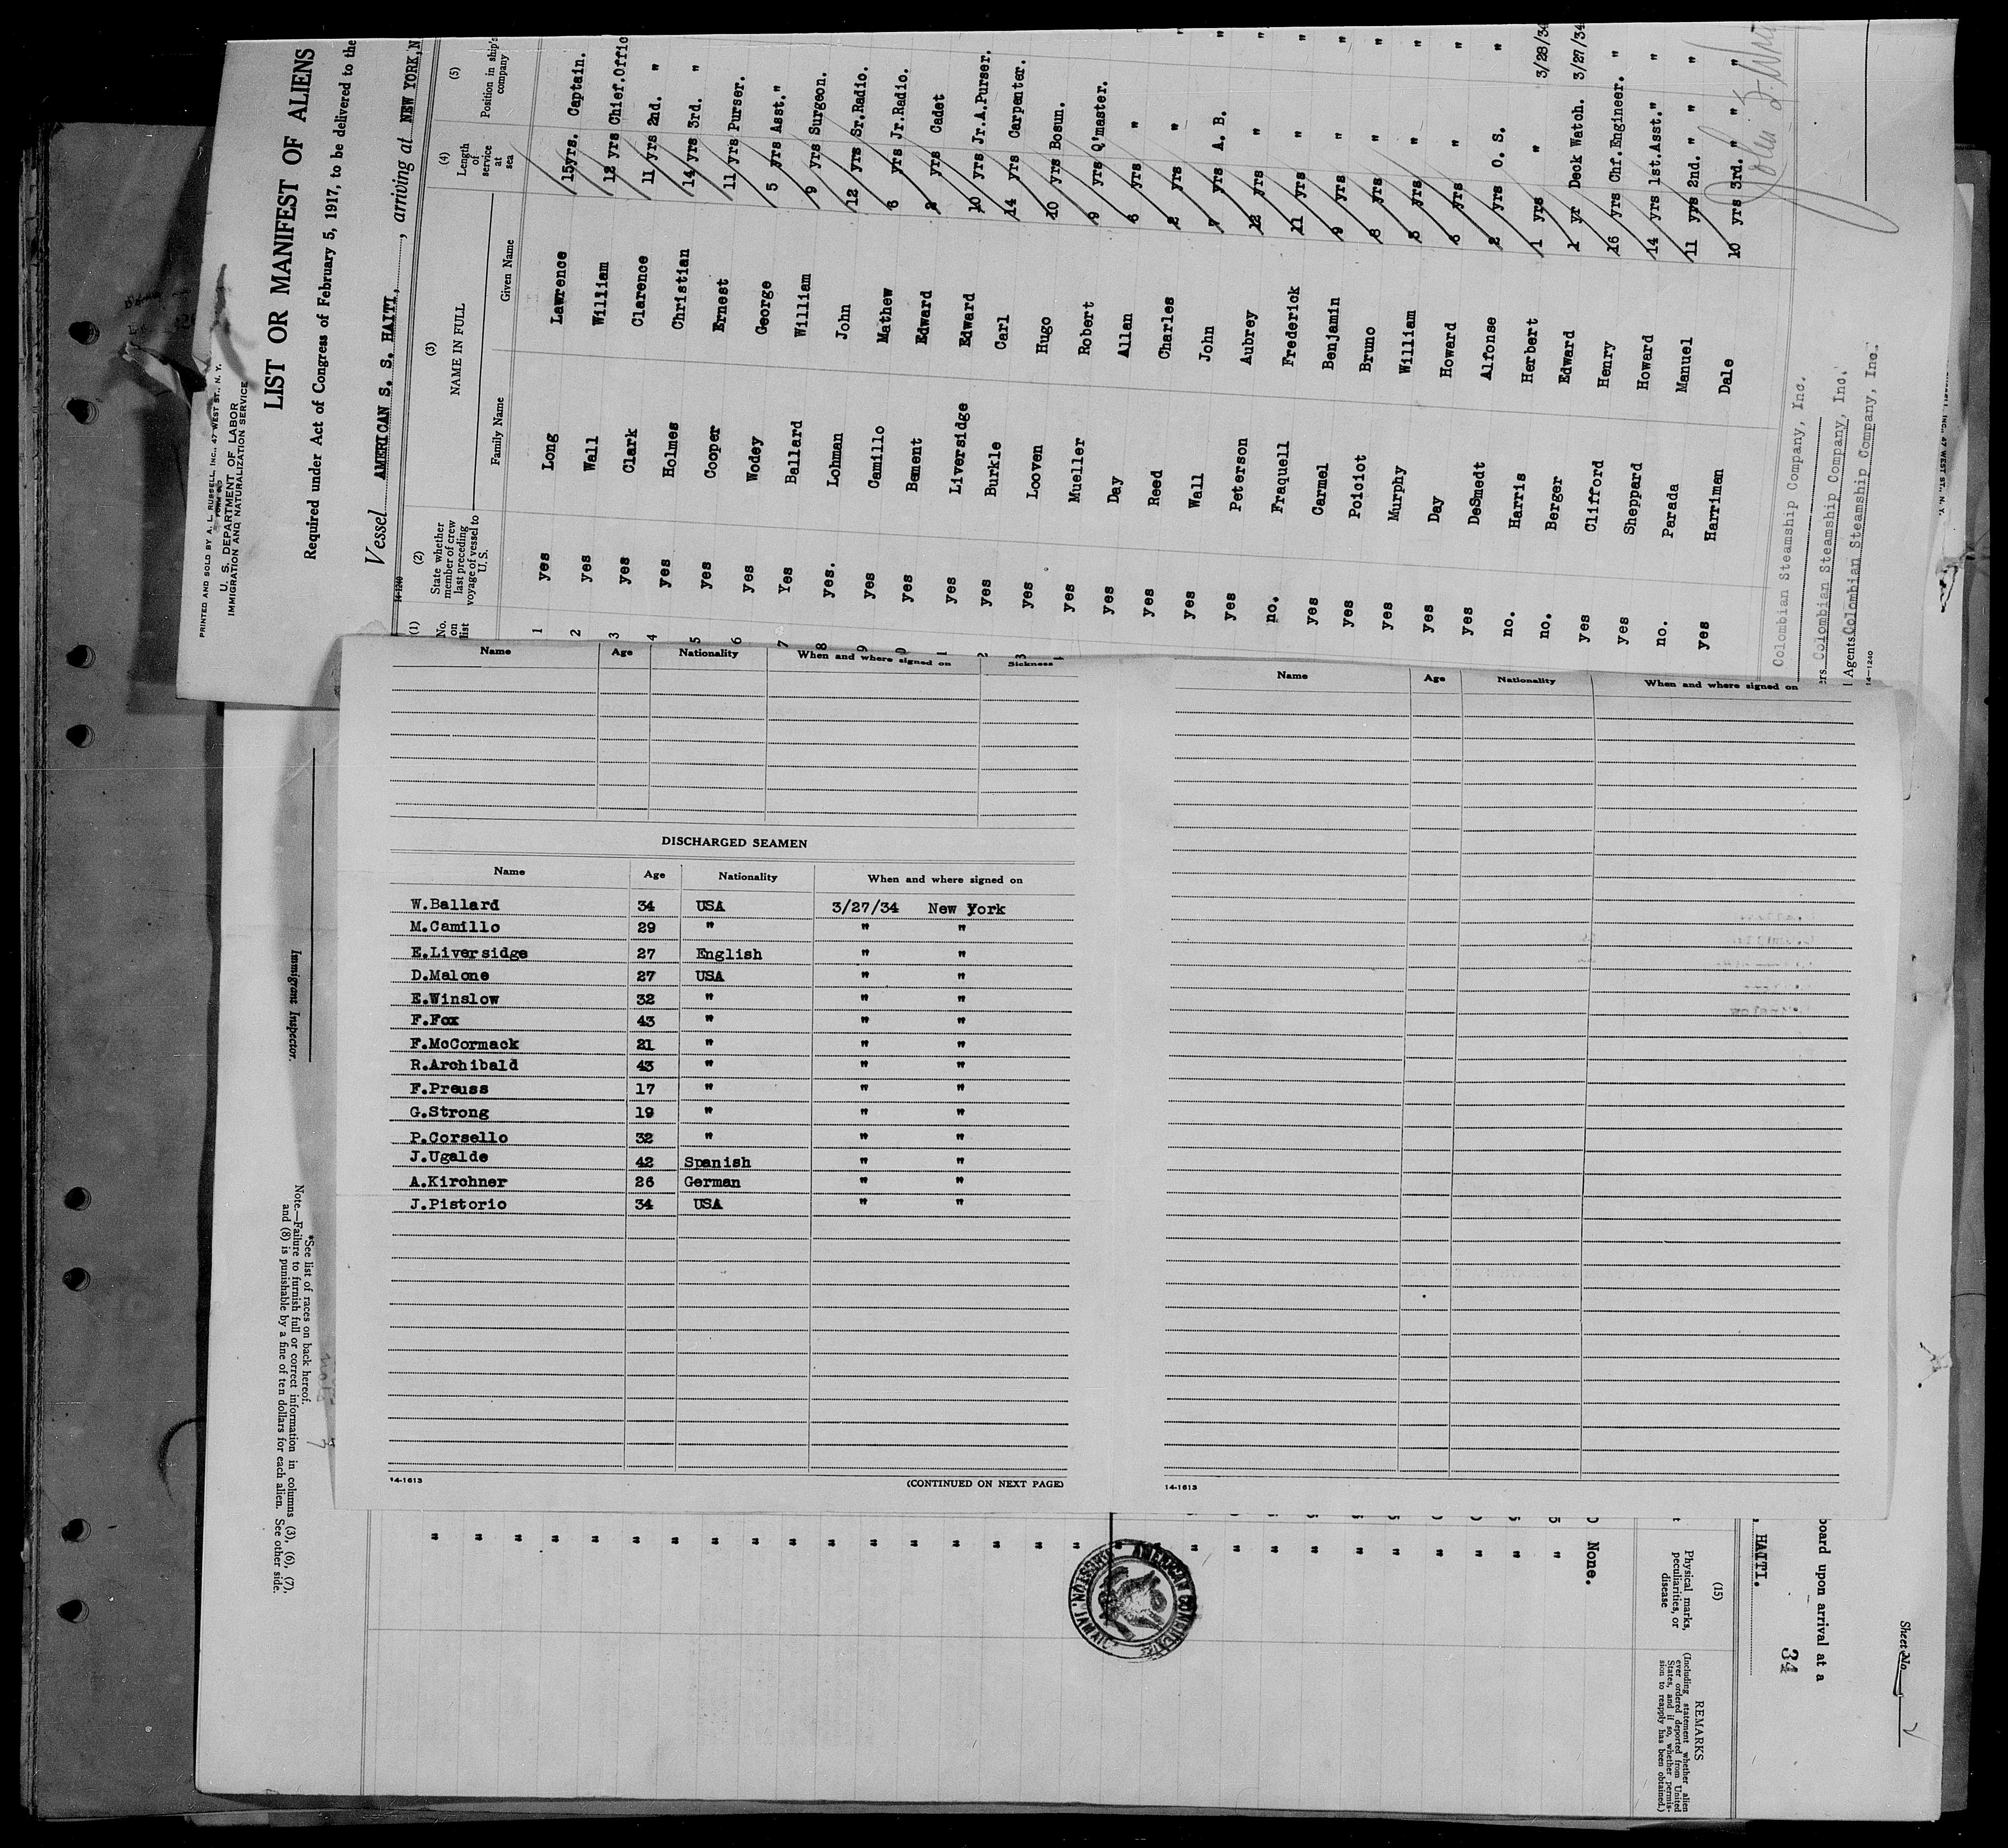 PRINTED AND SOLD BY A. L. RUSSELL, INC., 47 WEST ST., N. Y.
U. S. DEPARTMENT OF LABOR
IMMIGRATION AND NATURALIZATION SERVICE
LIST OR MANIFEST OF ALIENS
Required under Act of Congress of February 5, 1917, to be delivered to the
Vessel AMERICAN S. S. HAITI, arriving at NEW YORK, N
14-1240
(1) (2) (3) (4) (5)
No. on list
State whether member of crew last preceding voyage of vessel to U. S.
NAME IN FULL
Family Name Given Name
Length of service at sea
Position in ship's company
1 yes Long Lawrence 15yrs. Captain.
2 yes Wall William 12 yrs Chief.Offic
3 yes Clark Clarence 11 yrs 2nd. "
4 yes Holmes Christian 14 yrs 3rd. "
5 yes Cooper Ernest 11 yrs Purser.
6 yes Wodey George 5 yrs Asst."
7 Yes Ballard William 9 yrs Surgeon.
8 yes. Lohman John 12 yrs Sr.Radio.
9 yes Camillo Mathew 6 yrs Jr.Radio.
0 yes Bement Edward 2 yrs Cadet
1 yes Liversidge Edward 10 yrs Jr.A.Purser.
2 yes Burkle Carl 14 yrs Carpenter.
3 yes Looven Hugo 10 yrs Bosun.
yes Mueller Robert 9 yrs Q'master.
yes Day Allan 6 yrs " "
yes Reed Charles 8 yrs " "
yes Wall John 7 yrs A. B. "
yes Peterson Aubrey 12 yrs " "
no. Fraquell Frederick 11 yrs " "
yes Carmel Benjamin 9 yrs " "
yes Poiciot Bruno 8 yrs " "
yes Murphy William 5 yrs " "
yes Day Howard 6 yrs " "
yes DeSmedt Alfonse 2 yrs O. S. "
no. Harris Herbert 1 yrs " 3/28/34
no. Berger Edward 1 yr Deck Watch. 3/27/34
yes Clifford Henry 16 yrs Chf.Engineer. "
yes Sheppard Howard 14 yrs 1st.Asst." "
no. Parada Manuel 11 yrs 2nd. " " "
yes Harriman Dale 10 yrs 3rd. " " "
Colombian Steamship Company, Inc.
ers Colombian Steamship Company, Inc.
l Agents Colombian Steamship Company, Inc.
14-1240
47 WEST ST., N. Y.
Name Age Nationality When and where signed on Sickness
DISCHARGED SEAMEN
Name Age Nationality When and where signed on
W.Ballard 34 USA 3/27/34 New York
M.Camillo 29 " " "
E.Liversidge 27 English " "
D.Malone 27 USA " "
E.Winslow 32 " " "
F.Fox 43 " " "
F.McCormack 21 " " "
R.Archibald 43 " " "
F.Preuss 17 " " "
G.Strong 19 " " "
P.Corsello 32 " " "
J.Ugalde 42 Spanish " "
A.Kirchner 26 German " "
J.Pistorio 34 USA " "
14-1613
(CONTINUED ON NEXT PAGE)
Name Age Nationality When and where signed on
14-1613
Immigrant Inspector.
*See list of races on back hereof.
Note.—Failure to furnish full or correct information in columns (3), (6), (7),
and (8) is punishable by a fine of ten dollars for each alien. See other side.
Sheet No.
board upon arrival at a
34
HAITI.
(15)
Physical marks, peculiarities, or disease
REMARKS
(Including statement whether alien
ever ordered deported from United
States, and if so, whether permis-
sion to reapply has been obtained.)
None.
AMERICAN CONSULATE
KINGSTON, JAMAICA